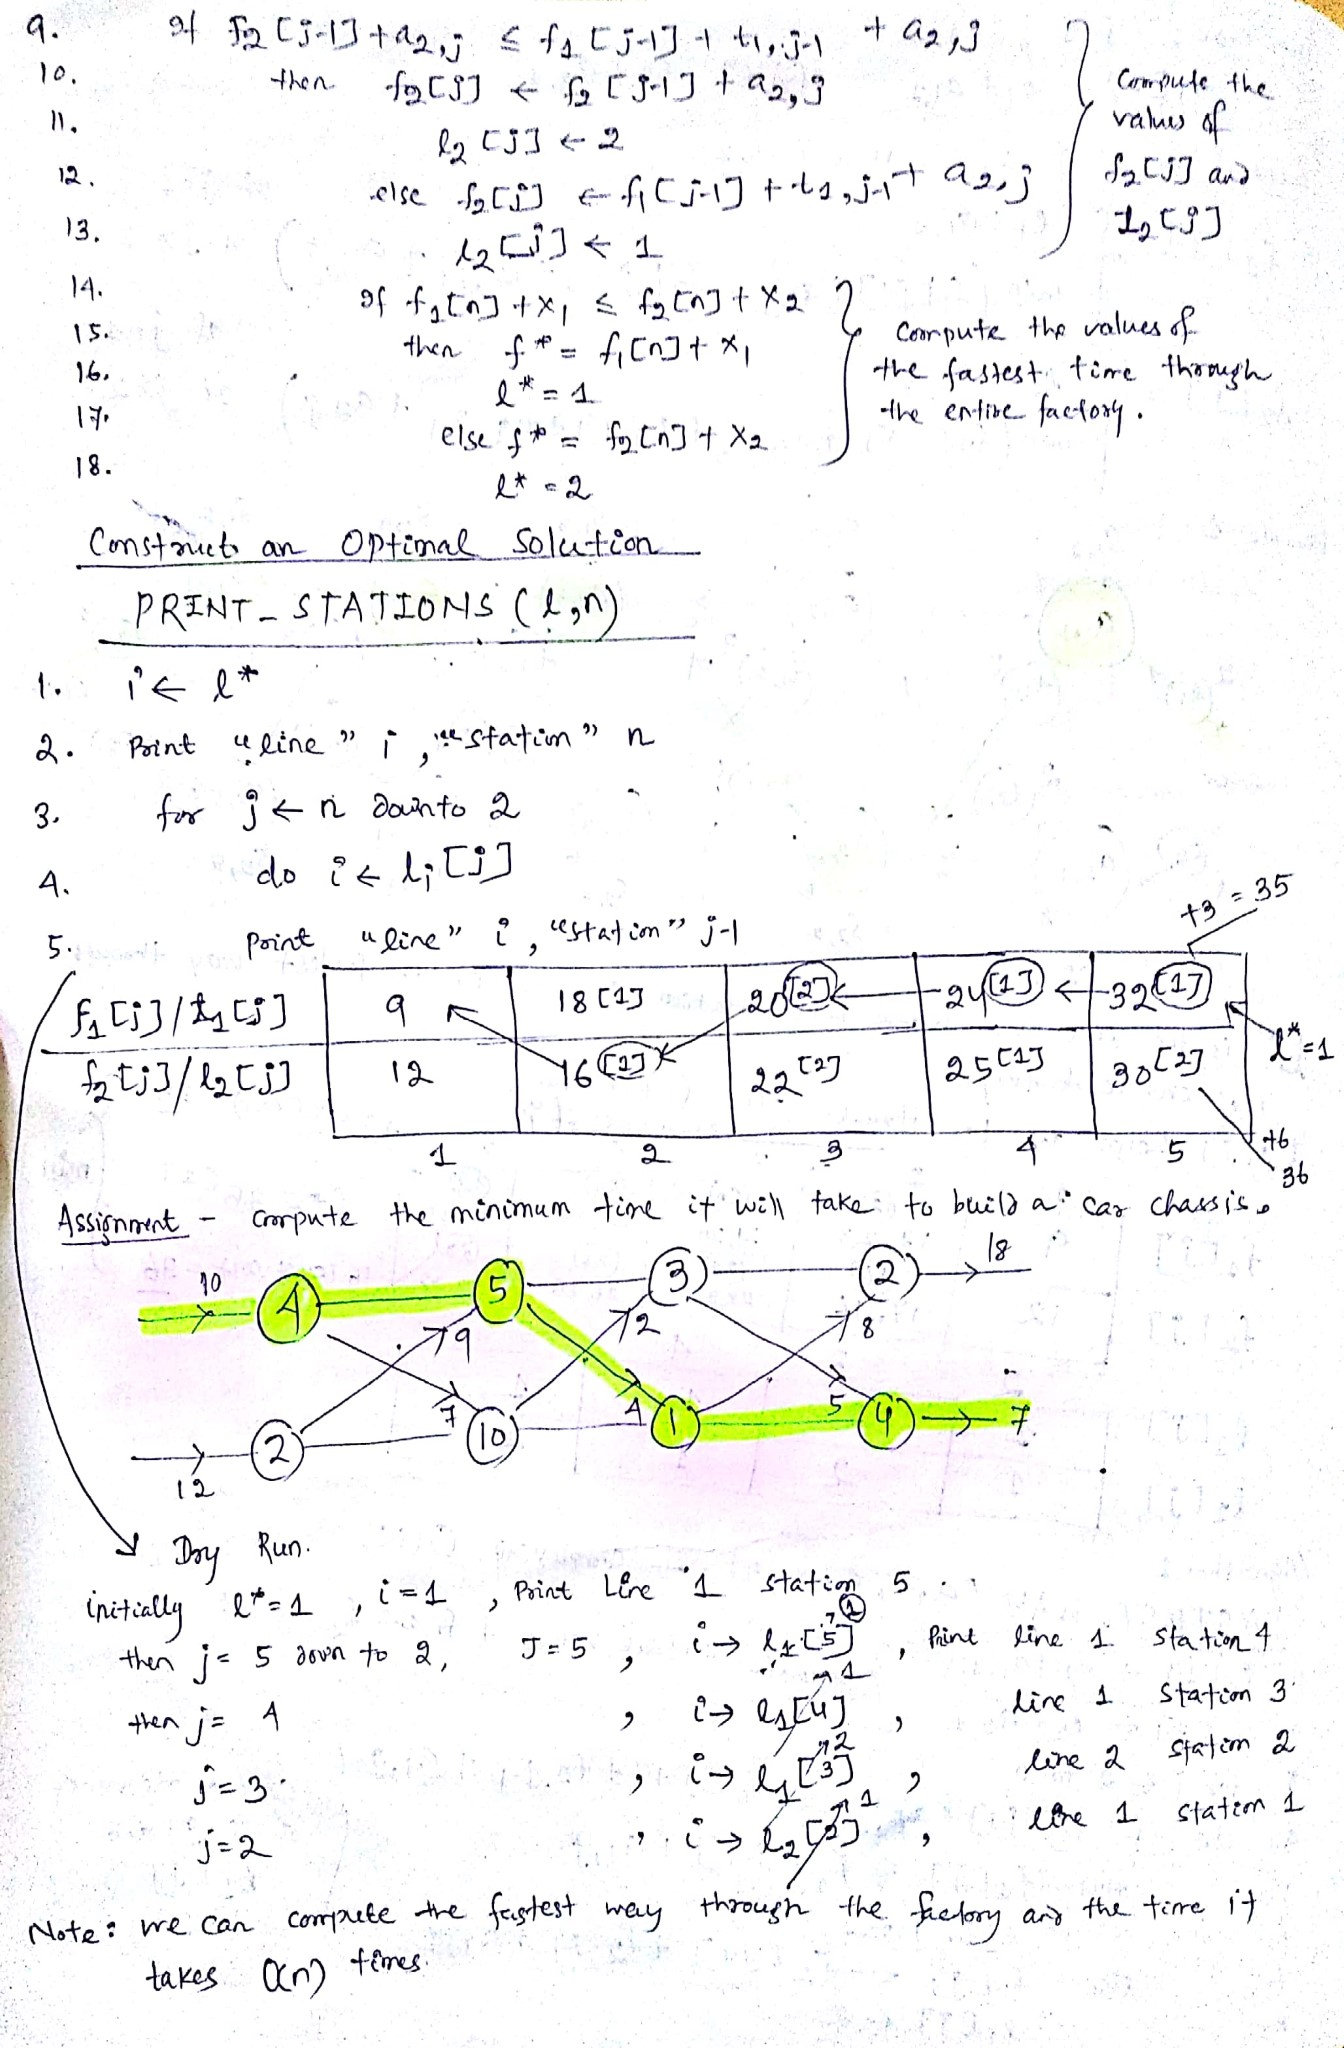 9. If f2[j-1]+a2,j ≤ f1[j-1]+t1,j-1 + a2,j
10. then f2[j] ← f2[j-1] + a2,j
11. l2[j] ← 2
12. else f2[j] ← f1[j-1] + t1,j-1 + a2,j
13. l2[j] ← 1
Compute the
values of
f2[j] and
l2[j]
14. If f1[n] + x1 ≤ f2[n] + x2
15. then f* = f1[n] + x1
16. l* = 1
17. else f* = f2[n] + x2
18. l* = 2
Compute the values of
the fastest time through
the entire factory.
Construct an Optimal Solution
PRINT_STATIONS (l,n)
1. i ← l*
2. Print "line" i, "station" n
3. for j ← n down to 2
4. do i ← li[j]
5. print "line" i, "station" j-1
+3 = 35
f1[j]/l1[j] 9 18[1] 20[2] 24[1] 32[1]
l*=1
f2[j]/l2[j] 12 16[1] 22[2] 25[1] 30[2]
1 2 3 4 5
+6
36
Assignment - compute the minimum time it will take to build a car chassis.
10 4 5 3 2 18
9 2 8
7 4 5
12 2 10 1 4 7
Dry Run.
initially l*=1, i=1, Print Line 1 station 5.
then j = 5 down to 2, J=5, i → l1[5] 1, Print line 1 station 4
then j = 4, i → l1[4] 1, line 1 station 3
j=3, i → l1[3] 2, line 2 station 2
j=2, i → l2[2] 1, line 1 station 1
Note: we can compute the fastest way through the factory and the time it
takes O(n) times.